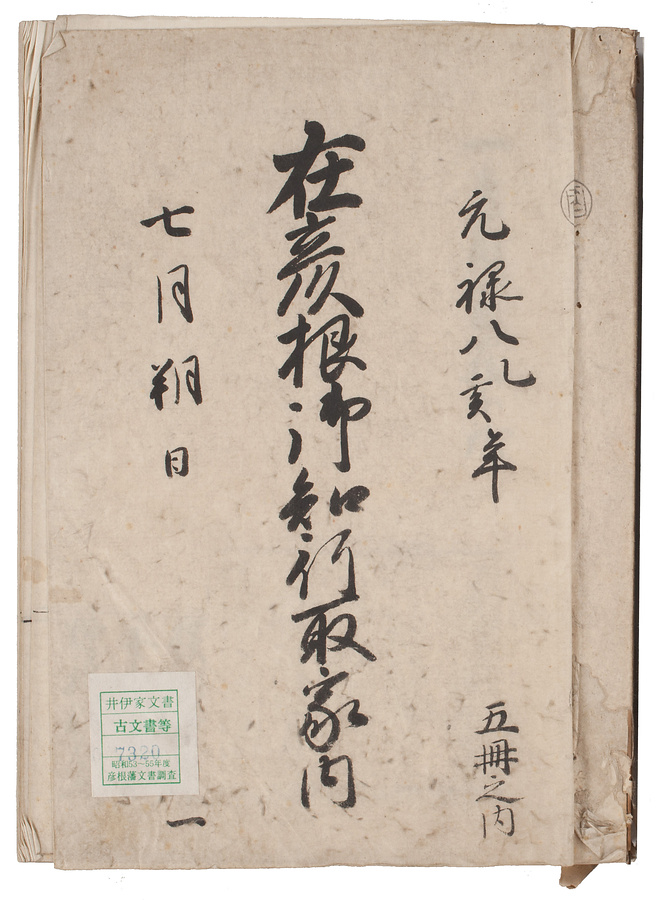 元禄八乙亥年
五冊之内
在彦根御知行取家内
七月朔日
一
井伊家文書
古文書等
7320
昭和53～55年度
彦根藩文書調査